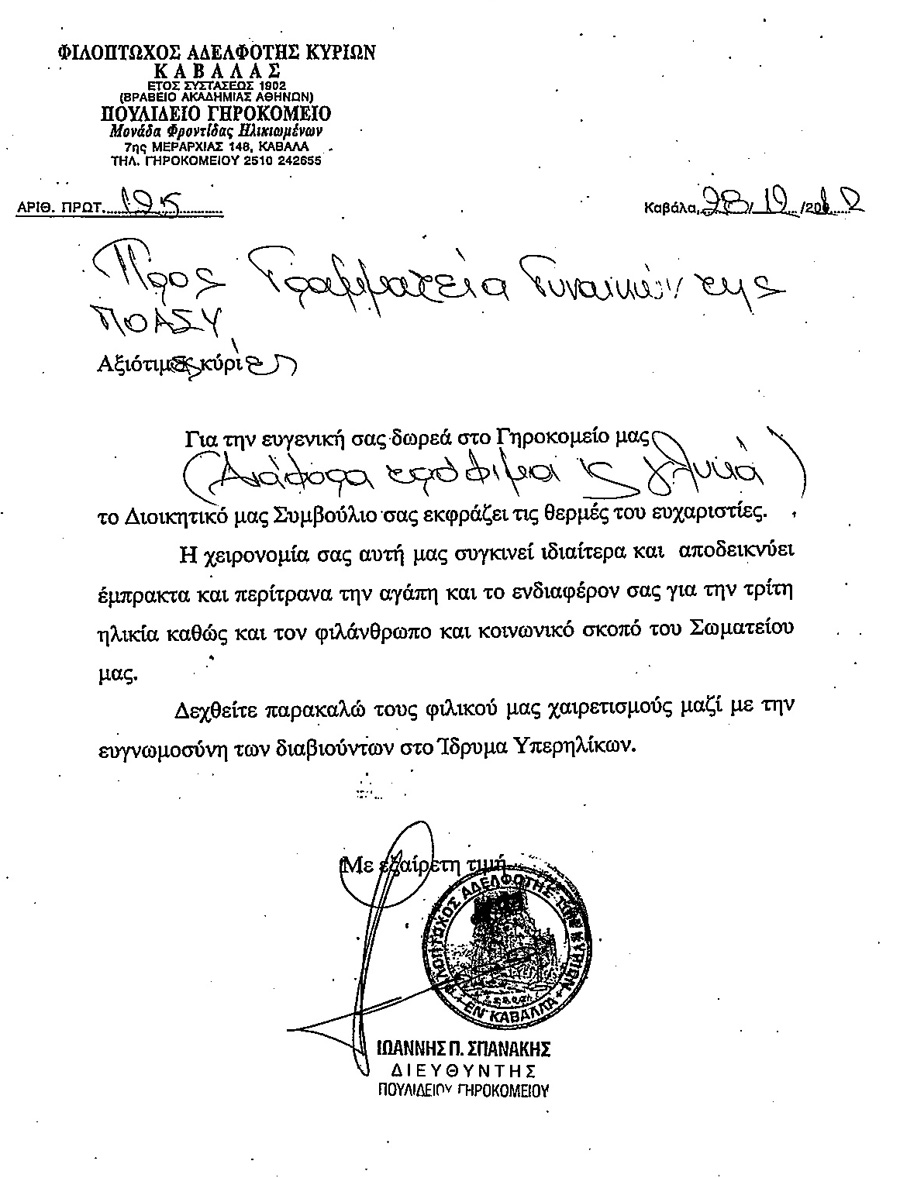 ΦΙΛΟΠΤΩΧΟΣ ΑΔΕΛΦΟΤΗΣ ΚΥΡΙΩΝ
ΚΑΒΑΛΑΣ
ΕΤΟΣ ΣΥΣΤΑΣΕΩΣ 1902
(ΒΡΑΒΕΙΟ ΑΚΑΔΗΜΙΑΣ ΑΘΗΝΩΝ)
ΠΟΥΛΙΔΕΙΟ ΓΗΡΟΚΟΜΕΙΟ
Μονάδα Φροντίδας Ηλικιωμένων
7ης ΜΕΡΑΡΧΙΑΣ 148, ΚΑΒΑΛΑ
ΤΗΛ. ΓΗΡΟΚΟΜΕΙΟΥ 2510 242655
ΑΡΙΘ. ΠΡΩΤ. 195
Καβάλα,
Προς Γραμματεία Γυναικών της
ΠΟΑΣΥ
Αξιότιμες κύριες
Για την ευγενική σας δωρεά στο Γηροκομείο μας
(Διάφορα τρόφιμα κ γλυκά)
το Διοικητικό μας Συμβούλιο σας εκφράζει τις θερμές του ευχαριστίες.
Η χειρονομία σας αυτή μας συγκινεί ιδιαίτερα και αποδεικνύει
έμπρακτα και περίτρανα την αγάπη και το ενδιαφέρον σας για την τρίτη
ηλικία καθώς και τον φιλάνθρωπο και κοινωνικό σκοπό του Σωματείου
μας.
Δεχθείτε παρακαλώ τους φιλικού μας χαιρετισμούς μαζί με την
ευγνωμοσύνη των διαβιούντων στο Ίδρυμα Υπερηλίκων.
Με εξαίρετη τιμή
ΦΙΛΟΠΤΩΧΟΣ ΑΔΕΛΦΟΤΗΣ ΤΩΝ ΚΥΡΙΩΝ
ΕΝ ΚΑΒΑΛΛΑ
ΙΩΑΝΝΗΣ Π. ΣΠΑΝΑΚΗΣ
ΔΙΕΥΘΥΝΤΗΣ
ΠΟΥΛΙΔΕΙΟΥ ΓΗΡΟΚΟΜΕΙΟΥ